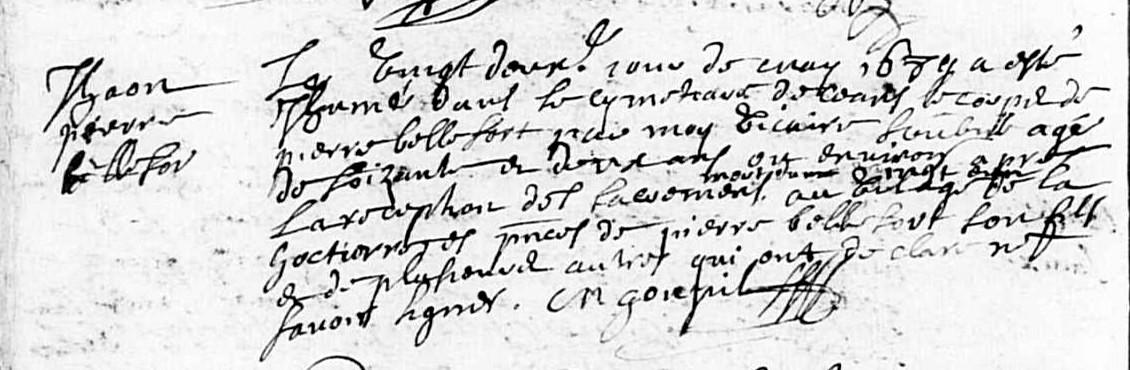 pierre
bellefor
Le vingt deux.e jour de may 1679 a esté
Inhumé dans le cymetiere de ceans le corps de
pierre bellefort par moy vicaire soubs.né agé
de soizante et deux ans ou environ
mort d'une apres
la reception des sacrements au vilage de la
es pnces de pierre bellefort son fils
et de plusieurs autres qui ont declaré ne
savoir signer.